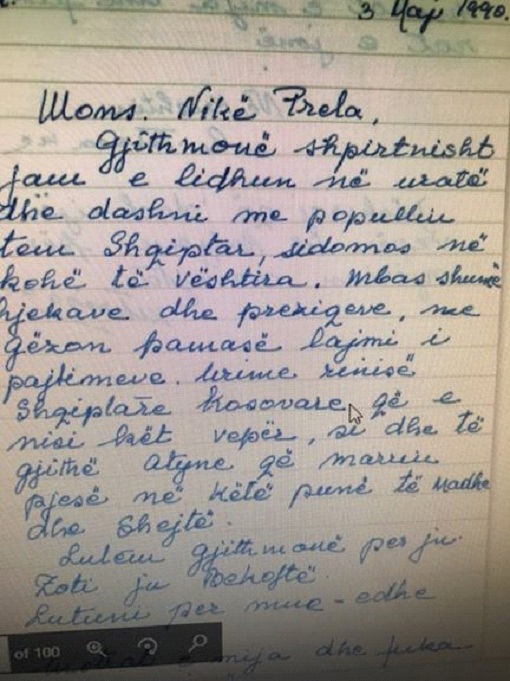 3 Maj 1990.
Mons. Nikë Prela,
Gjithmonë shpirtnisht
jam e lidhun në uratë
dhe dashni me popullin
tem Shqiptar, sidomos në
kohë të vështira. Mbas shumë
hjekave dhe prezigeve, me
gëzon pamasë lajmi i
pajtimeve. Urime rinisë
Shqiptare Kosovare që e
nisi két vepër, si dhe të
gjithë atyne që marrin
pjesë në këtë punë të madhe
dhe Shejtë.
Lutem gjithmonë per ju.
Zoti ju Bekoftë.
Lutuni per mue - edhe
of 100
e mija dhe juka